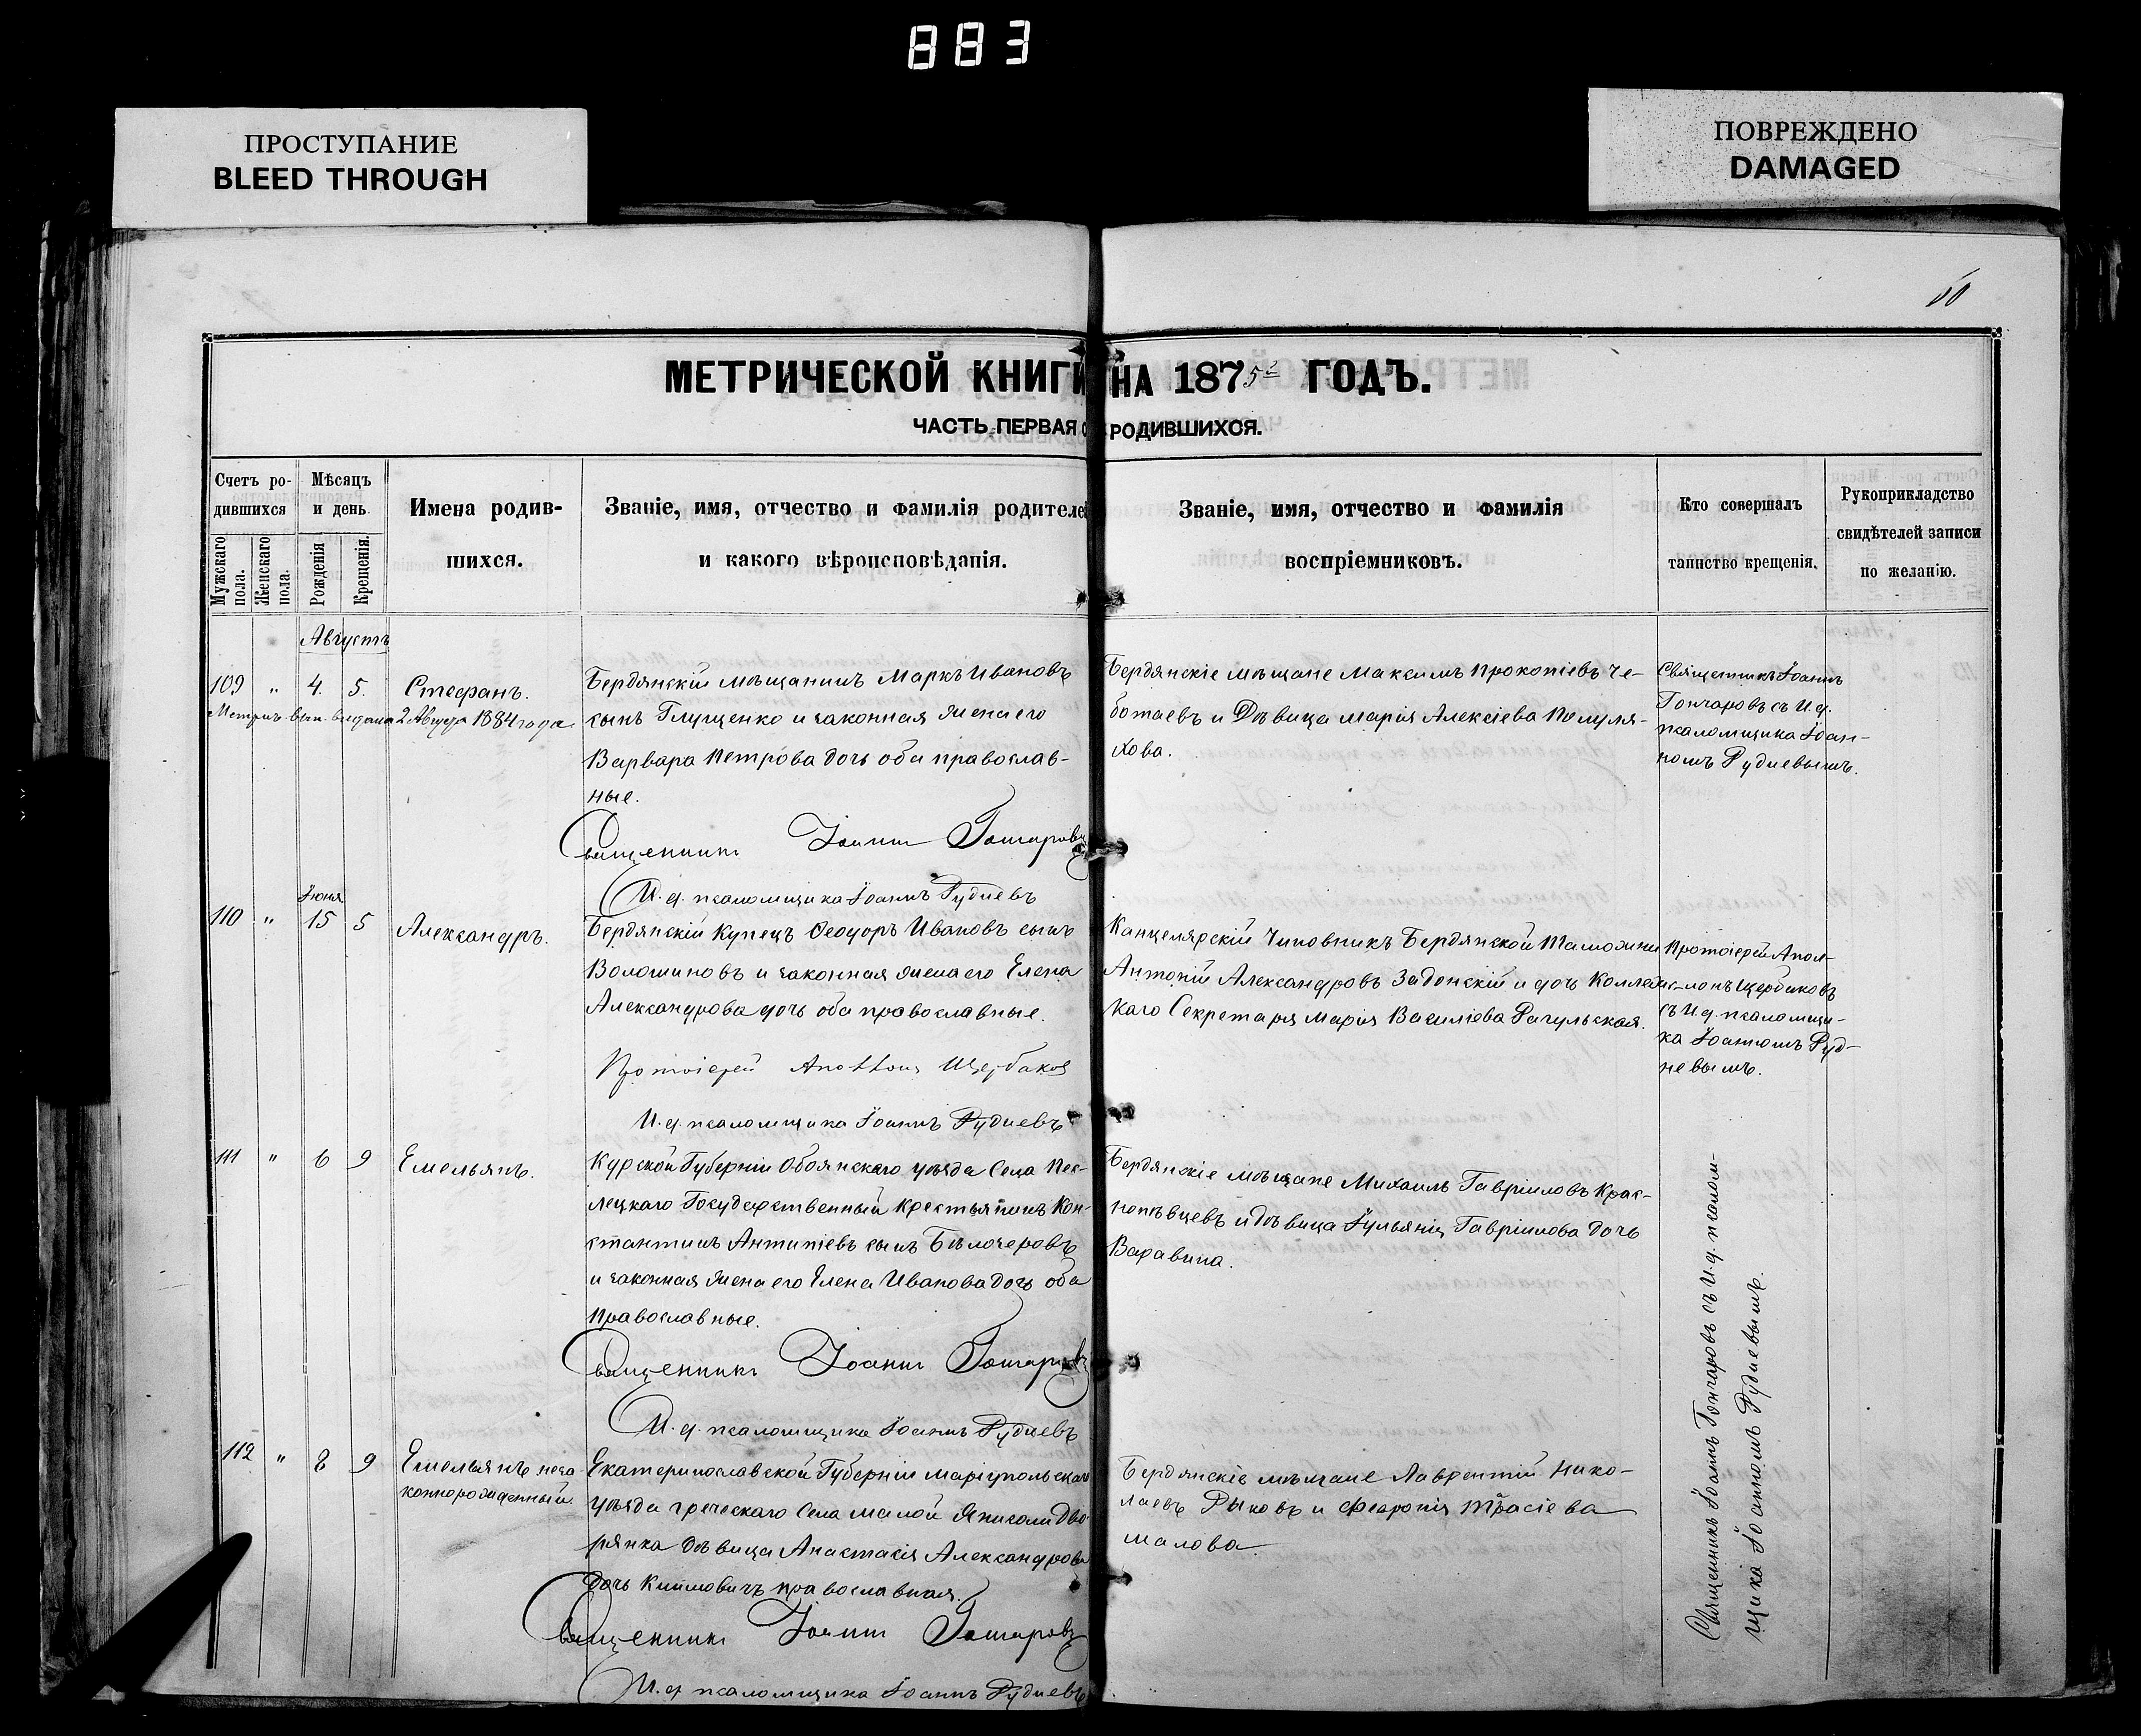 883
ПРОСТУПАНИЕ
BLEED THROUGH
ПОВРЕЖДЕНО
DAMAGED
МЕТРИЧЕСКОЙ КНИГИ НА 1875 ГОДЪ.
ЧАСТЬ ПЕРВАЯ О РОДИВШИХСЯ.
Счетъ ро-
дившихся
Мужскаго пола.
Женскаго пола.
Мѣсяцъ
и день
Рожденія
Крещенія.
Имена родив-
шихся.
Званіе, имя, отчество и фамилія родителей
и какого вѣроисповѣданія.
Званіе, имя, отчество и фамилія
воспріемниковъ.
Кто совершалъ
таинство крещенія.
Рукоприкладство
свидѣтелей записи
по желанію.
Августъ
109 " 4. 5. Стефанъ.
выдана 2 Августа 1884 года
Бердянскій мѣщанинъ Маркъ Ивановъ
сынъ Глущенко и законная жена его
Варвара Петрова дочь оба православ-
ные.
Священникъ Іоаннъ Гончаровъ
И. д. псаломщика Іоаннъ Рудневъ
Бердянскіе мѣщане Максимъ Прокопіевъ Че-
ботаевъ и Дѣвица Марія Алексіева Полуля-
хова.
Священникъ Іоаннъ
Гончаровъ съ И. д.
псаломщика Іоан-
номъ Рудневымъ.
Іюня
110 " 15 5 Александръ.
Бердянскій Купецъ Ѳеодоръ Ивановъ сынъ
Волошиновъ и законная жена его Елена
Александрова дочь оба православные.
Протоіерей Аполлонъ Щербаков
И. д. псаломщика Іоаннъ Рудневъ
Канцелярскій Чиновникъ Бердянской Таможни
Антоній Александровъ Задонскій и дочь Коллежс-
каго Секретаря Марія Василіева Рагульская.
Протоіерей Апол-
лонъ Щербаковъ
съ И. д. псаломщи-
ка Іоанномъ Руд-
невымъ.
111 " 6 9 Емельянъ.
Курской Губерніи Обоянскаго уѣзда Села Пес-
лецкаго Государственный Крестьянинъ Кон-
стантинъ Антипіевъ сынъ Бѣлочеровъ
и законная жена его Елена Иванова дочь оба
Православные.
Священникъ Іоаннъ Гончаровъ
И. д. псаломщика Іоаннъ Рудневъ
Бердянскіе мѣщане Михаилъ Гавріиловъ Крас-
нопѣвцевъ и дѣвица Іульянія Гавріилова дочь
Варавина.
Священникъ Іоаннъ Гончаровъ съ И. д. псалом-
щика Іоанномъ Рудневымъ.
112 " 8 9 Емельянъ неза
коннорожденный.
Екатеринославской Губерніи Маріупольскаго
уѣзда греческаго Села Малой Яниколи Дво-
рянка дѣвица Анастасія Александрова
дочь Климовичъ православная.
Священникъ Іоаннъ Гончаровъ
И. д. псаломщика Іоаннъ Рудневъ
Бердянскіе мѣщане Лаврентій Нико-
лаевъ Рыковъ и Феврония Тарасіева
Малова